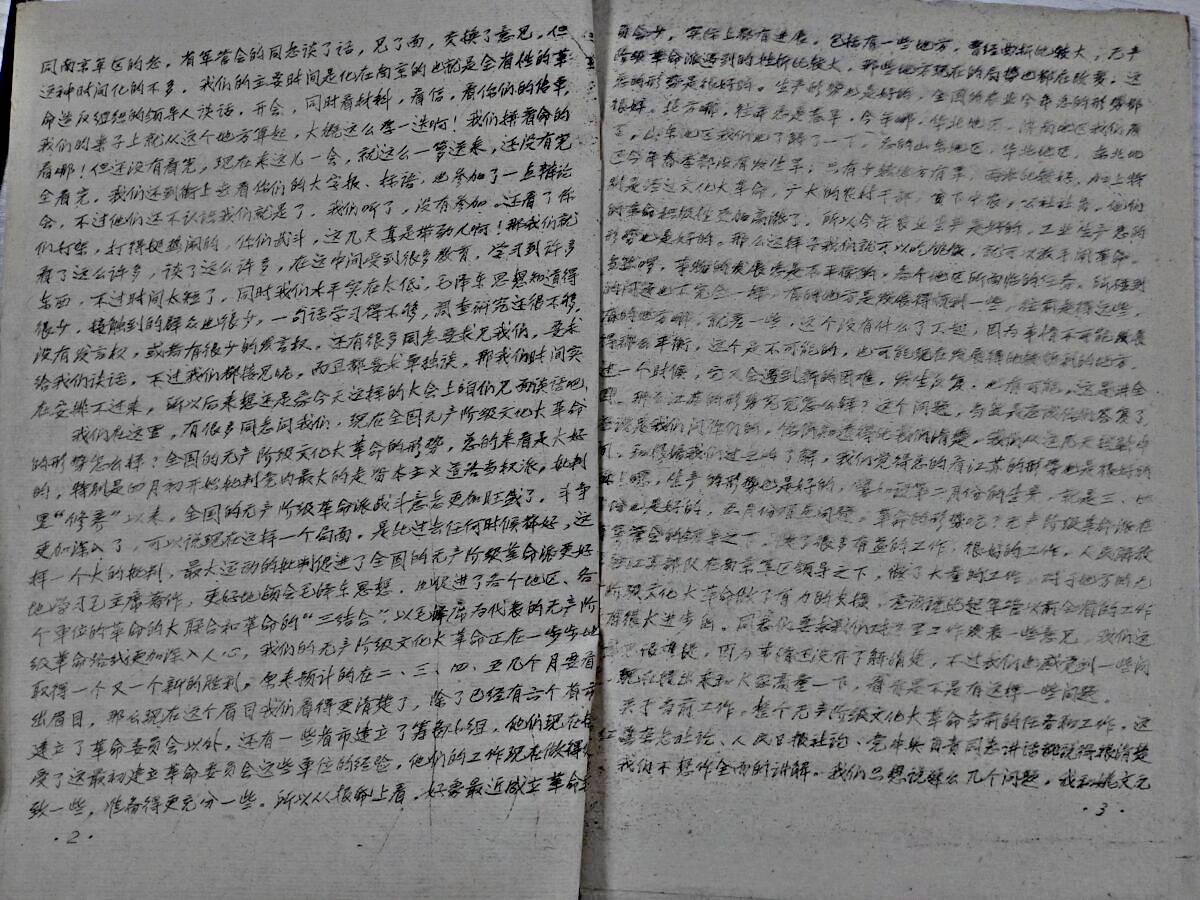 同南京军区的您，有军管会的同志谈了话，见了面，交换了意见，但
这种时间化的不多，我们的主要时间是化在南京的也就是全省性的革
命造反组织的领导人谈话，开会，同时看材料，看信，看你们的传单，
我们的桌子上就从这个地方算起，大概这么厚一迭啊！我们接着拚命的
看哪！但还没有看完，现在来这儿一会，就这么一箩送来，还没有完
全看完，我们还到街上去看你们的大字报、标语，也参加了一点辩论
会，不过他们还不认识我们就是了，我们听了，没有参加，还看了你
们打架，打得挺热闹的，你们武斗，这几天真是带劲人啊！那我们就
看了这么许多，谈了这么许多，在这中间受到很多教育，学习到许多
东西，不过时间太短了，同时我们水平实在太低，毛泽东思想知道得
很少，接触到的群众也很少，一句话学习得不够，调查研究还很不够，
没有发言权，或者有很少的发言权，还有很多同志要求见我们，要求
给我们谈话，不过我们都接见呢，而且都要求单独谈，那我们时间实
在安排不过来，所以后来想还是要今天这样的大会上咱们见面谈话吧。
我们在这里，有很多同志问我们，现在全国无产阶级文化大革命
的形势怎么样？全国的无产阶级文化大革命的形势，总的来看是大好
的，特别是四月初开始批判党内最大的走资本主义道路当权派，批判
黑“修养”以来，全国的无产阶级革命派战斗意志更加旺盛了，斗争
更加深入了，可以说现在这样一个局面，是比过去任何时候都好，这
样一个大的批判，最大运动的批判促进了全国的无产阶级革命派更好
地学习毛主席著作，更好地领会毛泽东思想，也促进了各个地区、各
个单位的革命的大联合和革命的“三结合”，以毛主席为代表的无产阶
级革命路线更加深入人心，我们的无产阶级文化大革命正在一步步地
取得一个又一个新的胜利。原来预计的在二、三、四、五几个月要看
出眉目，那么现在这个眉目我们看得更清楚了，除了已经有六个省市
建立了革命委员会以外，还有一些省市建立了筹备小组，他们现在接
受了这最初建立革命委员会这些单位的经验，他们的工作现在做得细
致一些，准备得更充分一些。所以从报面上看，好象最近成立革命委
·2·
员会少，实际上都有进展，包括有一些地方，曾经曲折比较大，无产
阶级革命派遇到的挫折比较大，那些地方现在的局势也都在改变，这
总的形势是很好的。生产形势也是好的，全国的农业今年总的形势都
很好，北方哪，往年总是春旱，今年哪，华北地区，济南地区我们看
了，山东地区我们也了解了一下，总的山东地区，华北地区，东北地
区今年春季都没有发生旱，只有少数地方有旱，雨水比较好，加上特
别是经过文化大革命，广大的农村干部，贫下中农，公社社员，他们
的革命积极性更加高涨了，所以今年农业生产是好的，工业生产总的
形势也是好的，那么这样子我们就可以吃饱饭，就可以放手闹革命。
当然啰，事物的发展总是不平衡的，各个地区所面临的任务，所碰到
的问题也不完全一样，有的地方是发展得顺利一些，往前走得远些，
有的地方哪，就差一些，这个没有什么了不起，因为事情不可能发展
得那么平衡，这个是不可能的，也可能现在发展得比较顺利的地方，
过一个时候，它又会遇到新的困难，发生反复，也有可能，这是讲全
国，那么江苏的形势究竟怎么样？这个问题，当然是应该你们答复了，
应该是我们问你们的，你们知道得比我们清楚，我们从这几天接触中
间，和根据我们过去的了解，我们觉得总的看江苏的形势也是很好的
！嘿，生产的形势也是好的，譬如说第二月份的生产，就是三、四
月份也是好的，五月份有点问题，革命的形势呢？无产阶级革命派在
军管会的领导之下，做了很多有益的工作，很好的工作，人民解放
驻江苏部队在南京军区领导之下，做了大量的工作，对于地方的无
阶级文化大革命做了有力的支援，应该说比起军管以前全省的工作
有很大进步的，同志们要求我们对这里工作发表一些意见，我们这
意见很难提，因为事情还没有了解清楚，不过我们也感觉到一些问
现在提出来和大家商量一下，看看是不是有这样一些问题。
关于当前工作，整个无产阶级文化大革命当前的任务和工作，这
红旗杂志社论、人民日报社论、党中央负责同志讲话都说得很清楚
我们不想作全面的讲解。我们只想说那么几个问题，我和姚文元
·3·